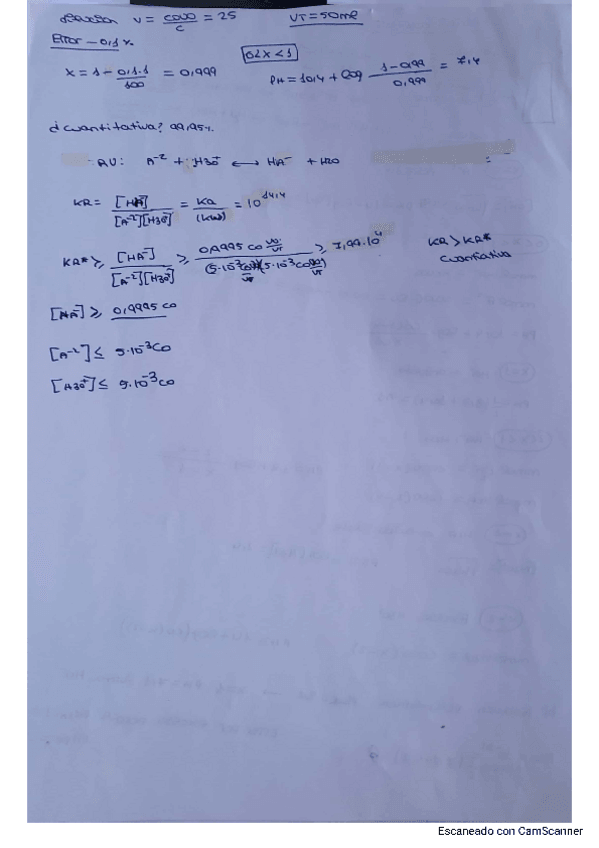 V = COVO/C = 25 VT = 50ml
Error - 0,1%
0<X<1
X = 1 - 0,1.1/100 = 0,999 PH = 10,4 + log 1-0,99/0,999 = 7,4
¿Cuantitativa? 99,95%
RV: A⁻² + H3O⁺ ⟷ HA⁻ + H2O =
KR = [HA⁻]/[A⁻²][H3O⁺] = Ka/(KW) = 10
KR* ≥ [HA⁻]/[A⁻²][H3O⁺] ≥ 0,9995 CO VO/VT / (5·10⁻³CO VO/VT)(5·10⁻³CO VO/VT) ≥ 7,99·10⁴ KR > KR*
Cuantitativa
[HA⁻] ≥ 0,9995 CO
[A⁻²] ≤ 5·10⁻³CO
[H3O⁺] ≤ 5·10⁻³CO
Escaneado con CamScanner